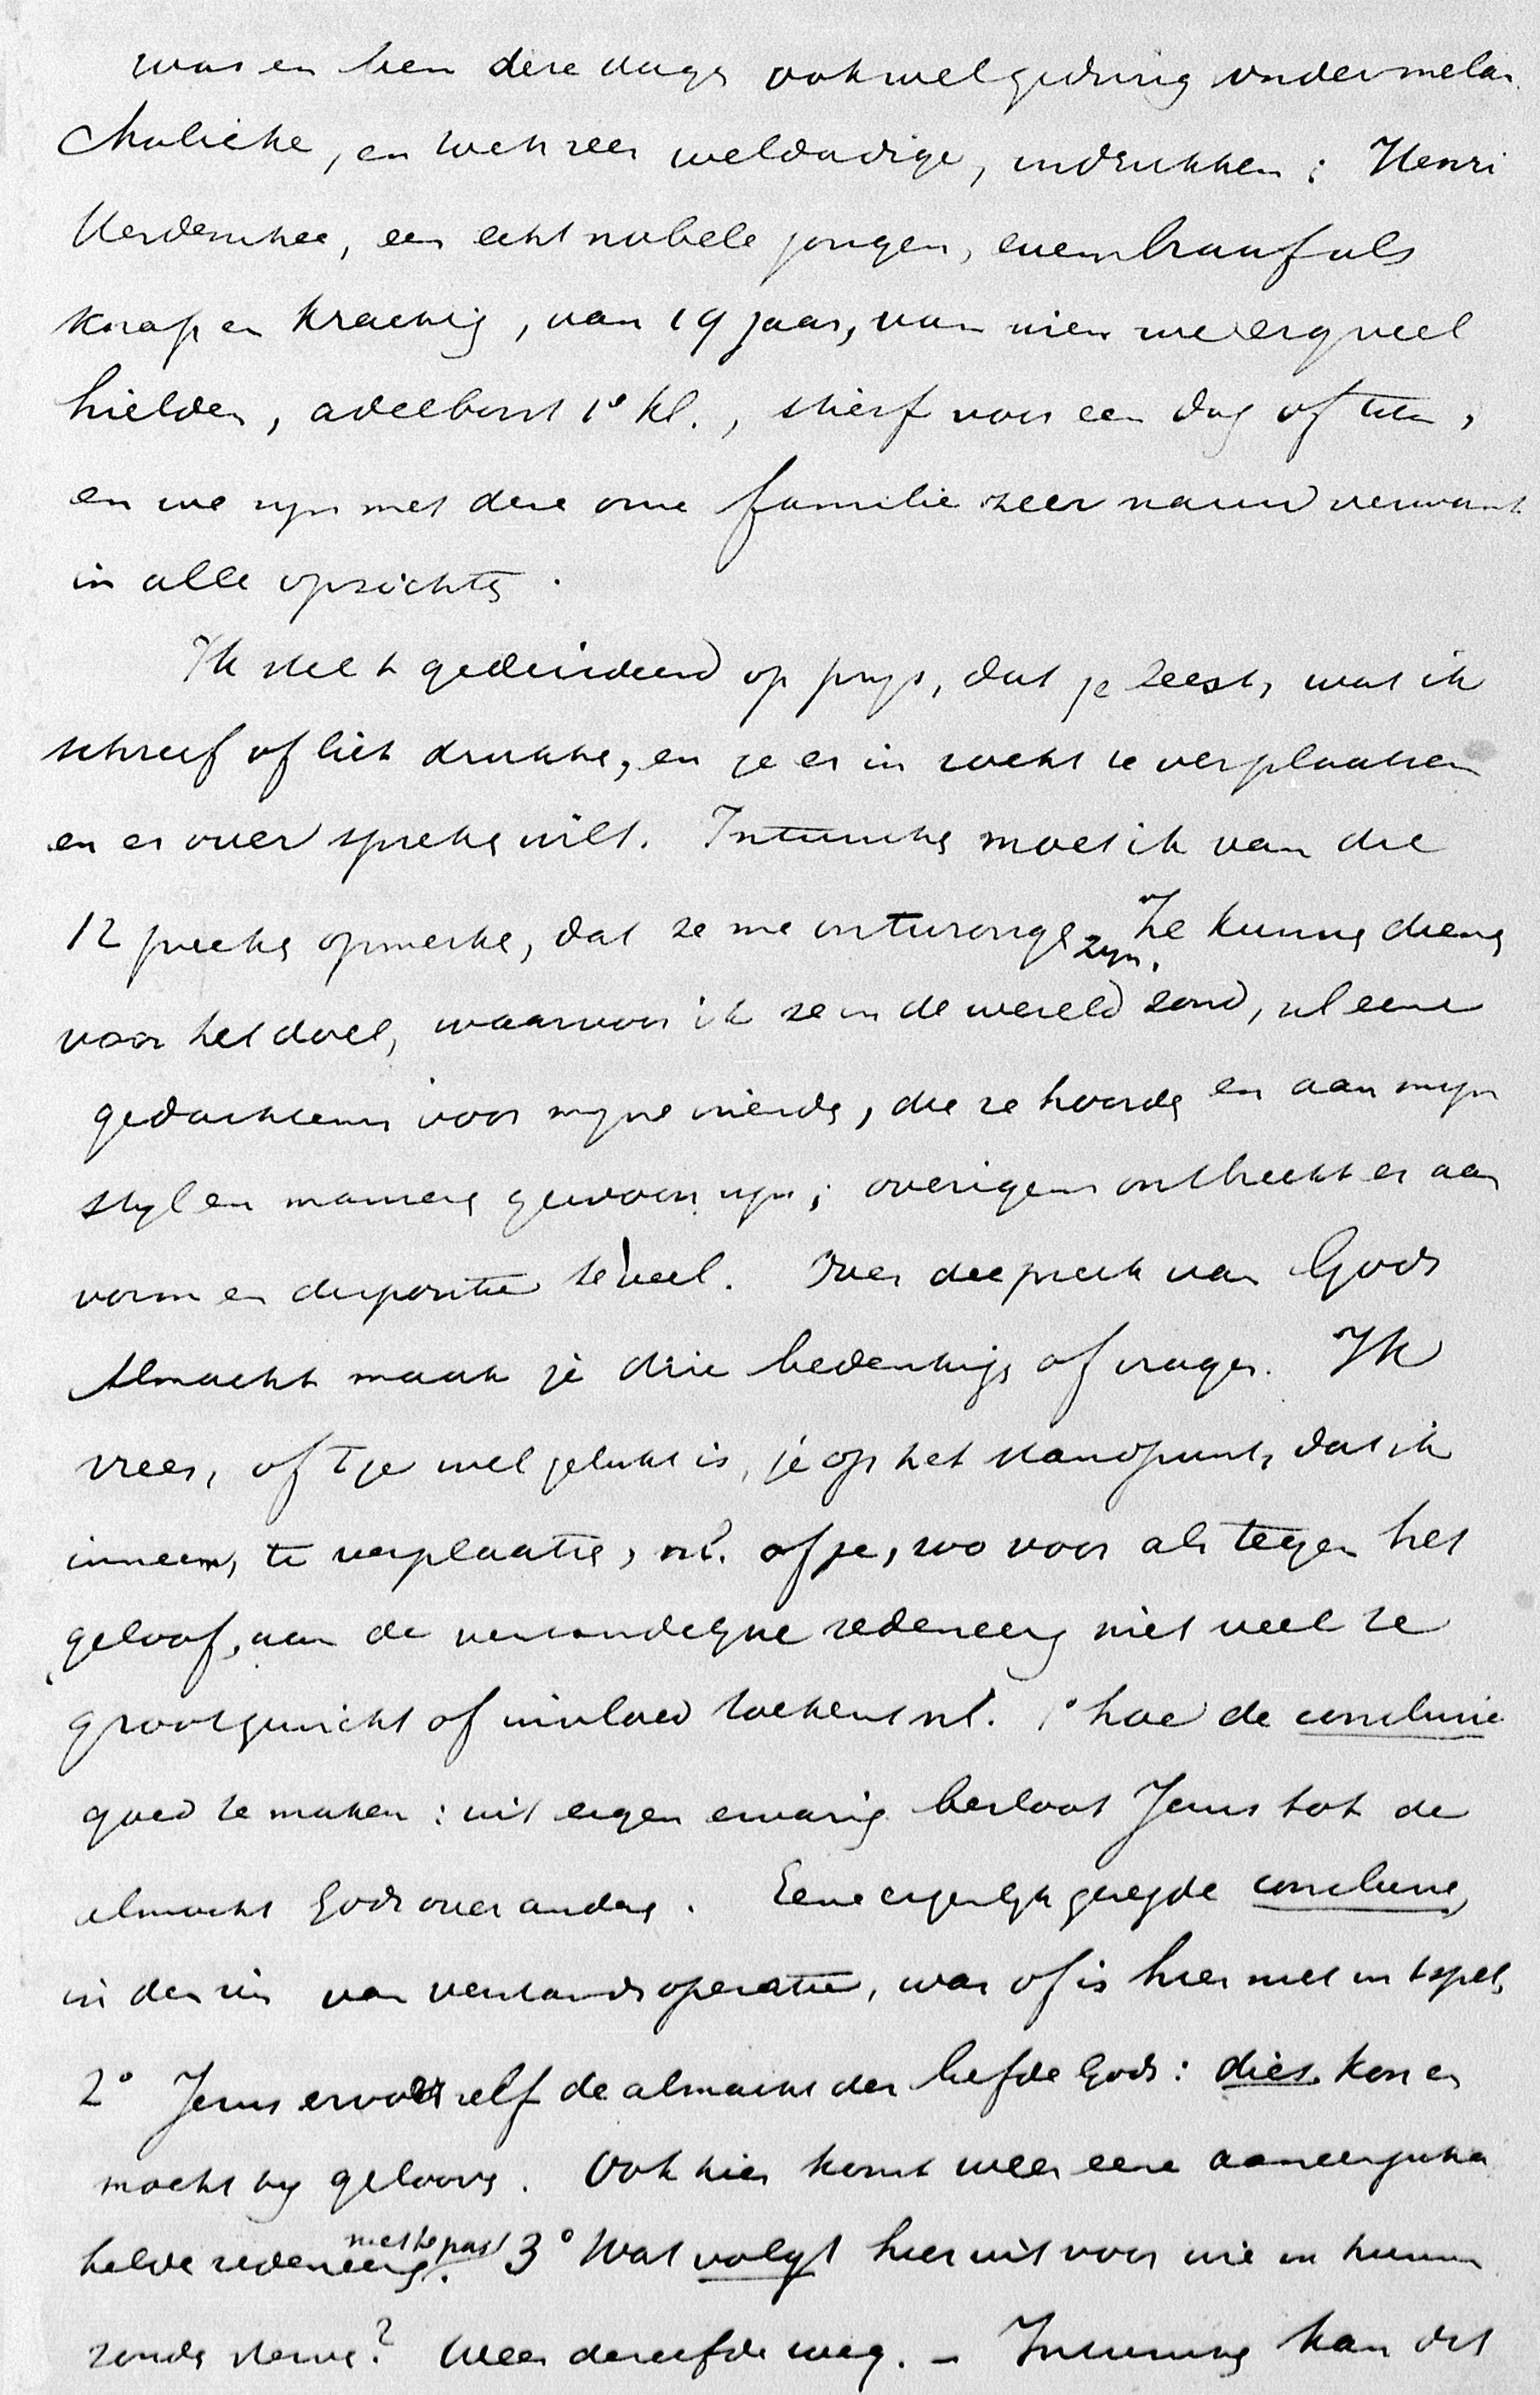 was en ben deze dagen ook wel gedurig onder melan
cholieke, en toch zeer weldadige, indrukken: Henri
een echt nobele jongen, even braaf als
knap en krachtig, van 19 jaar, van wien we erg veel
hielden, adelborst 1e kl., stierf voor een dag of tien,
en we zyn met deze onze familie zeer nauw verwant
in alle opzichten.
Ik stel 't gedecideerd op prys, dat je leest, wat ik
schreef of liet drukken, en je er in zoekt te verplaatsen
en er over spreken wilt. Intusschen moet ik van die
12 preeken opmerken, dat ze me ontwrongen zyn. Ze kunnen dienen
voor het doel, waarvoor ik ze in de wereld zond, als eene
gedachtenis voor myne vrienden, die ze hoorden en aan myn
styl en manieren gewoon zyn; overigens ontbreekt er aan
vorm en dispositie te veel. Over die preek van Gods
Almacht maak je drie bedenkingen of vragen. Ik
vrees, of 't je wel gelukt is, je op het standpunt, dat ik
inneem, te verplaatsen, nl. of je, zoo voor als tegen het
geloof, aan de verstandelyke redeneering niet veel te
groot gewicht of invloed toekent nl. 1° hoe de conclusie
goed te maken: uit eigen ervaring besloot Jezus tot de
almacht Gods over anderen. Eene eigenlyk gezegde conclusie,
in den zin van verstandsoperatie, was of is hier niet in 't spel,
2° Jezus ervoer zelf de almacht der liefde Gods: dies kon en
mocht hy gelooven. Ook hier komt weer eene aaneengescha
kelde redeneering niet te pas. 3° Wat volgt hieruit voor wie in hunne
zonde sterven? Weer dezelfde weg. – Intusschen kan dit